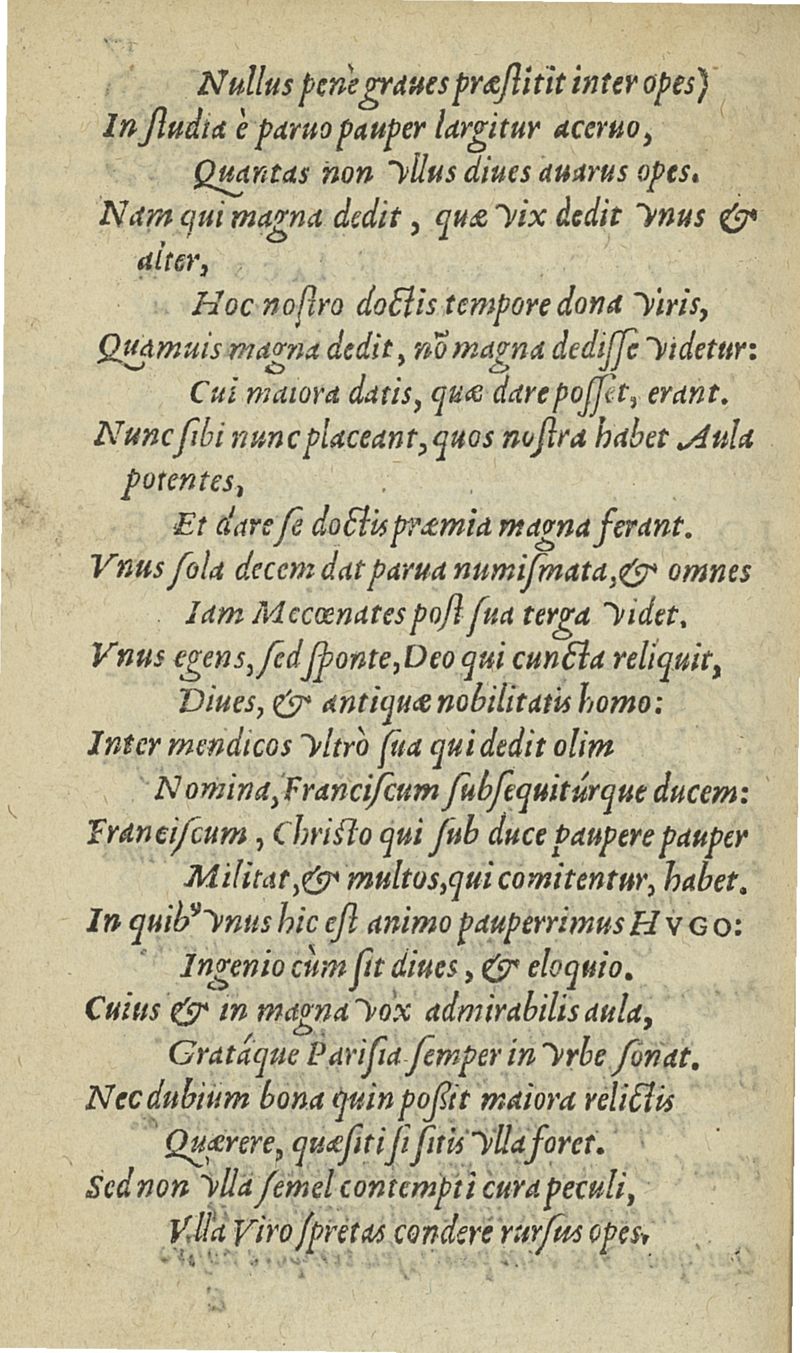 Nullus penè graues præſtitit inter opes)
In ſtudia è paruo pauper largitur aceruo,
Quantas non vllus diues auarus opes.
Nam qui magna dedit, quæ vix dedit vnus &
alter,
Hoc noſtro doctis tempore dona viris,
Quamuis magna dedit, nō magna dediſſe videtur:
Cui maiora datis, quæ dare poſſet, erant.
Nunc ſibi nunc placeant, quos noſtra habet Aula
potentes,
Et dare ſe doctis præmia magna ferant.
Vnus ſola decem dat parua numiſmata, & omnes
Iam Mecœnates poſt ſua terga videt.
Vnus egens, ſed ſponte, Deo qui cuncta reliquit,
Diues, & antiquæ nobilitatis homo:
Inter mendicos vltrò ſua qui dedit olim
Nomina, Franciſcum ſubſequitúrque ducem:
Franciſcum, Chriſto qui ſub duce paupere pauper
Militat, & multos, qui comitentur, habet.
In quibꝰ vnus hic eſt animo pauperrimus HVGO:
Ingenio cùm ſit diues, & eloquio.
Cuius & in magna vox admirabilis aula,
Gratáque Pariſia ſemper in vrbe ſonat.
Nec dubium bona quin poßit maiora relictis
Quærere, quæſiti ſi ſitis vlla foret.
Sed non vlla ſemel contempti cura peculi,
Vlla Viro ſpretas condere rurſus opes.